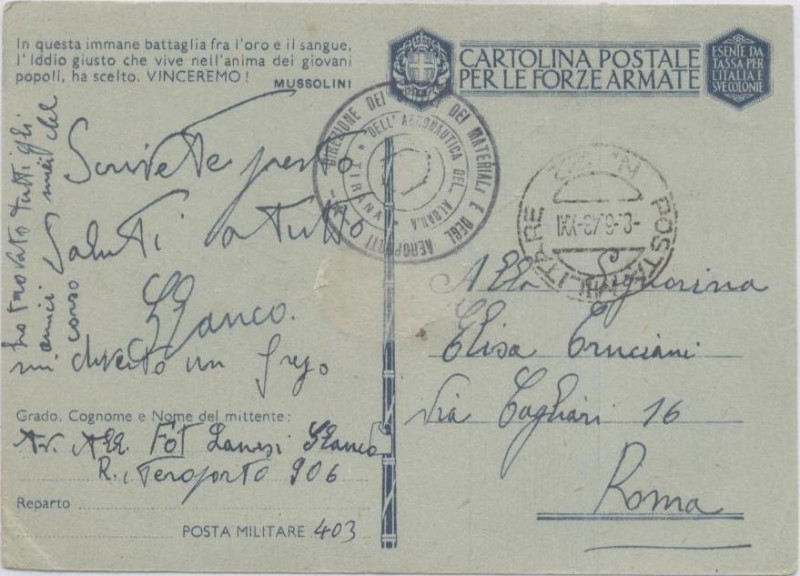 In questa immane battaglia fra l'oro e il sangue,
l'Iddio giusto che vive nell'anima dei giovani
popoli, ha scelto. VINCEREMO!
MUSSOLINI
CARTOLINA POSTALE
PER LE FORZE ARMATE
ESENTE DA
TASSA PER
L'ITALIA E
SVE COLONIE
DIREZIONE DEI DEI MATERIALI E DEGLI AEROPORTI
DELL'AERONAUTICA DEL ALBANIA
TIRANA
POSTA MILITARE
Scrivete presto
Saluti a tutti
Glauco.
mi diverto un
ho trovato tutti gli
amici miei del
corso
Grado, Cognome e Nome del mittente:
Av. All. Fot Glauco
R. Aeroporto 906
Reparto
POSTA MILITARE 403
Alla Signorina
Elisa Cruciani
Via Cagliari 16
Roma